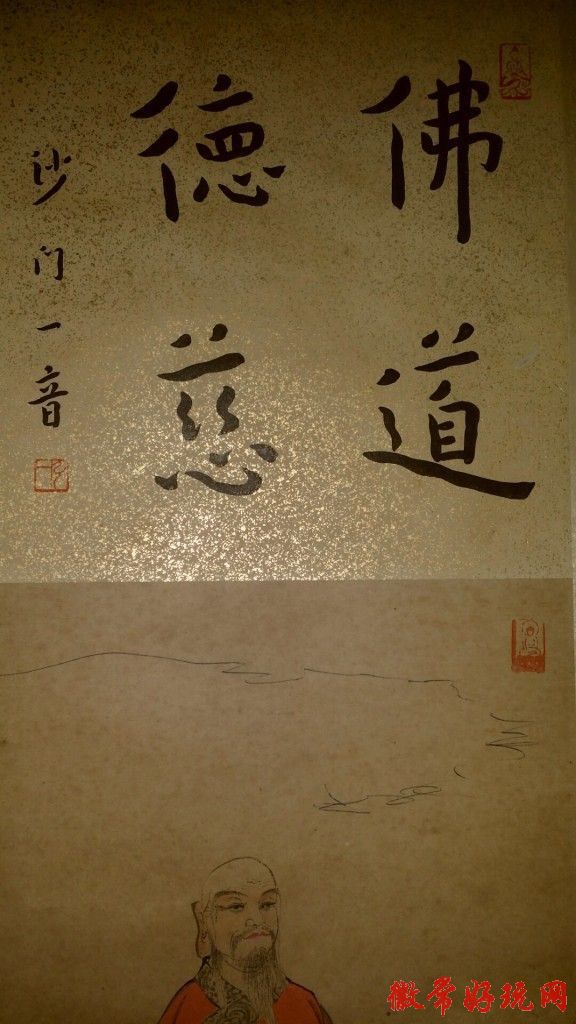 佛道
德慈
沙门一音
徽常好玩网